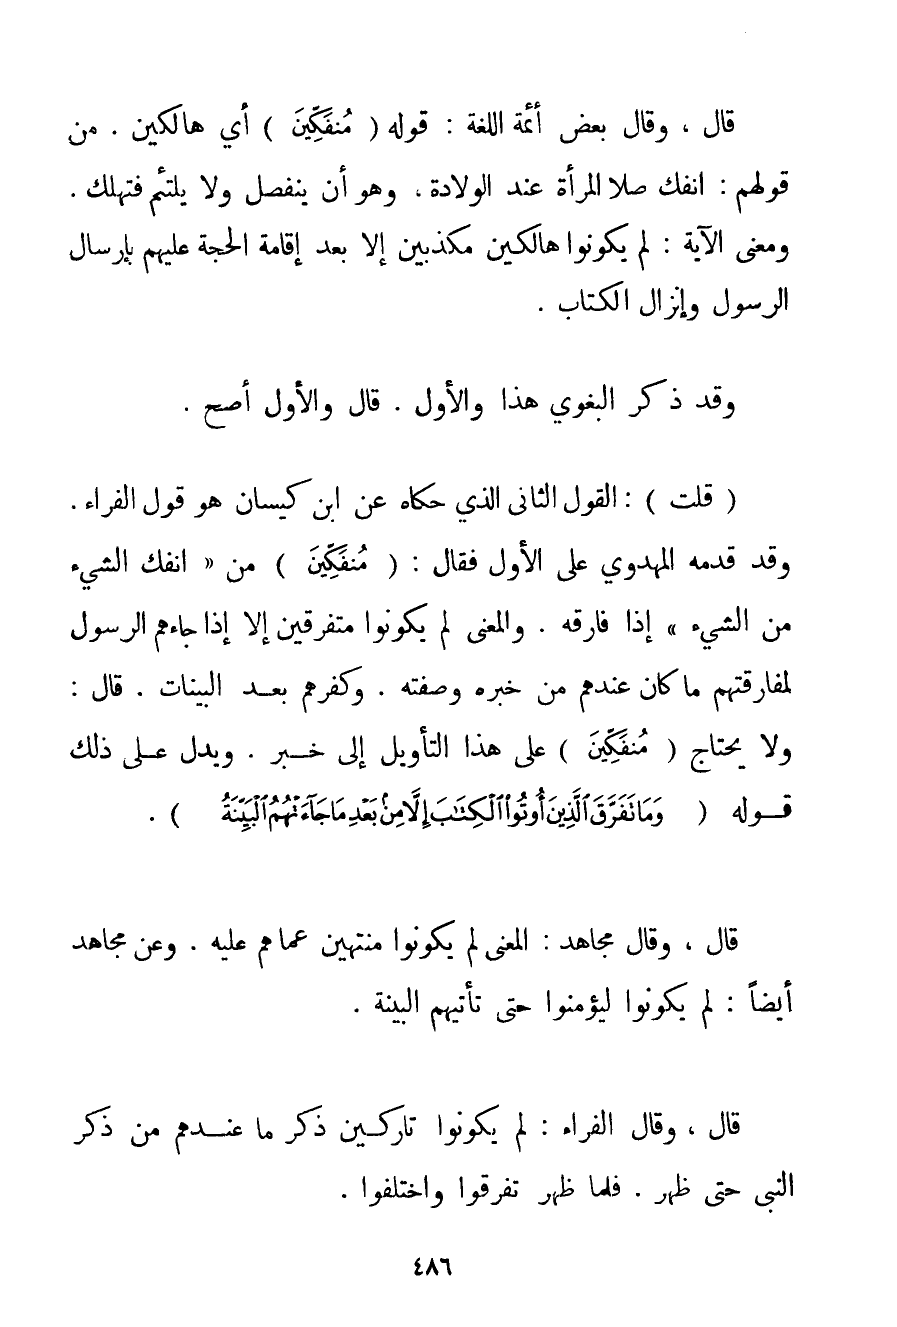 قال ، وقال بعض أئمة اللغة : قوله ( مُنفَكِّينَ ) أي هالكين . من
قولهم : انفك صلا المرأة عند الولادة ، وهو أن ينفصل ولا يلتئم فتهلك .
ومعنى الآية : لم يكونوا هالكين مكذبين إلا بعد إقامة الحجة عليهم بإرسال
الرسول وإنزال الكتاب .
وقد ذكر البغوي هذا والأول . قال والأول أصح .
( قلت ) : القول الثانى الذي حكاه عن ابن كيسان هو قول الفراء .
وقد قدمه المهدوي على الأول فقال : ( مُنفَكِّينَ ) من « انفك الشيء
من الشيء » إذا فارقه . والمعنى لم يكونوا متفرقين إلا إذا جاءهم الرسول
لمفارقتهم ما كان عندهم من خبره وصفته . وكفرهم بعد البينات . قال :
ولا يحتاج ( مُنفَكِّينَ ) على هذا التأويل إلى خبر . ويدل على ذلك
قوله ( وَمَا تَفَرَّقَ ٱلَّذِينَ أُوتُوا۟ ٱلْكِتَٰبَ إِلَّا مِنۢ بَعْدِ مَا جَآءَتْهُمُ ٱلْبَيِّنَةُ ) .
قال ، وقال مجاهد : المعنى لم يكونوا منتهين عما هم عليه . وعن مجاهد
أيضاً : لم يكونوا ليؤمنوا حتى تأتيهم البينة .
قال ، وقال الفراء : لم يكونوا تاركين ذكر ما عندهم من ذكر
النبى حتى ظهر . فلما ظهر تفرقوا واختلفوا .
٤٨٦